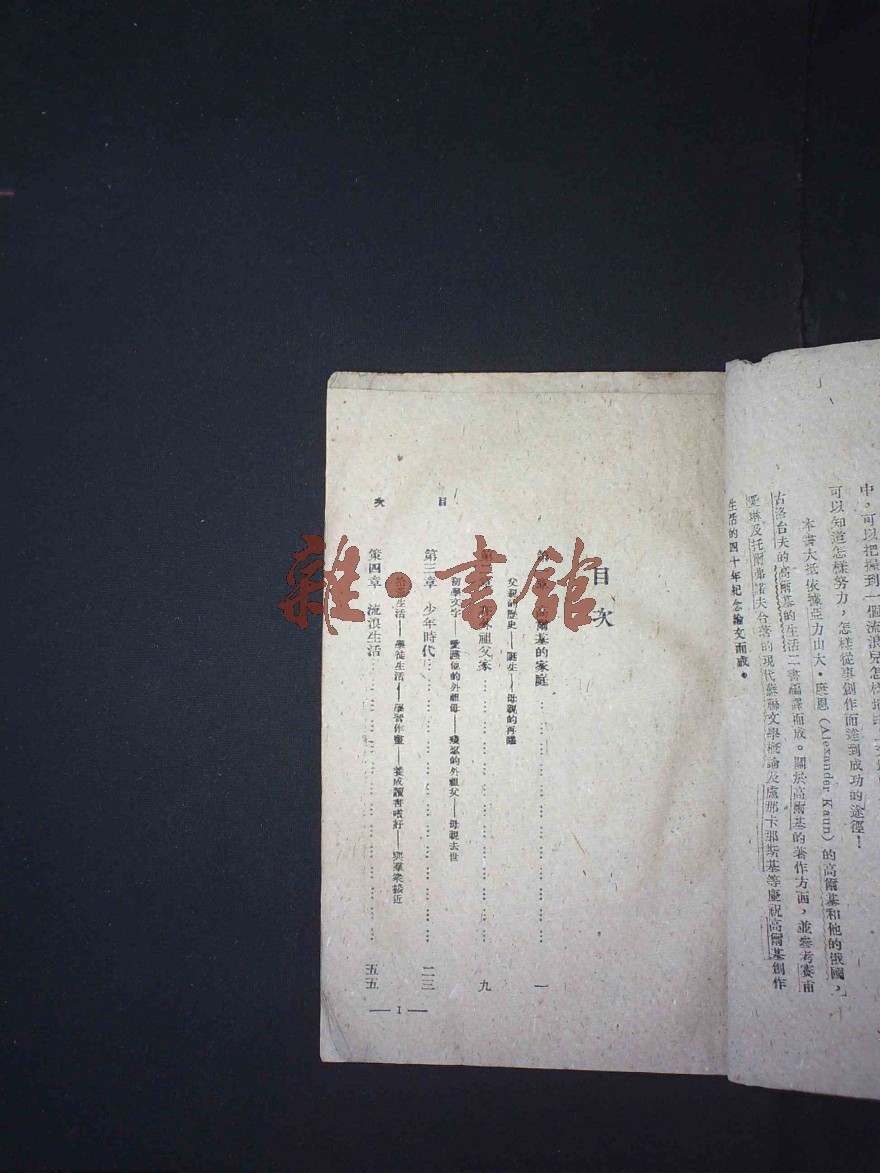 中，可以把握到一個流浪兒怎樣
可以知道怎樣努力，怎樣從事創作而達到成功的途徑…
本書大抵依據亞力山大・庫恩（Alexander Kaun）的高爾基和他的俄國，
古洛台夫的高爾基的生活二書編譯而成。關於高爾基的著作方面，並參考賽甫
愛林及托爾弗諾夫合著的現代蘇聯文學概論及盧那卡那斯基等慶祝高爾基創作
生活的四十年紀念論文而成。
目次
高爾基的家庭………一
父親的歷史——誕生——母親的再醮
外祖父家………九
初學文字——愛護他的外祖母——殘暴的外祖父——母親去世
第三章 少年時代………二三
生活——學徒生活——學習作畫——養成讀書嗜好——與羣衆接近
第四章 流浪生活………五五
目次
— I —
雜・書館